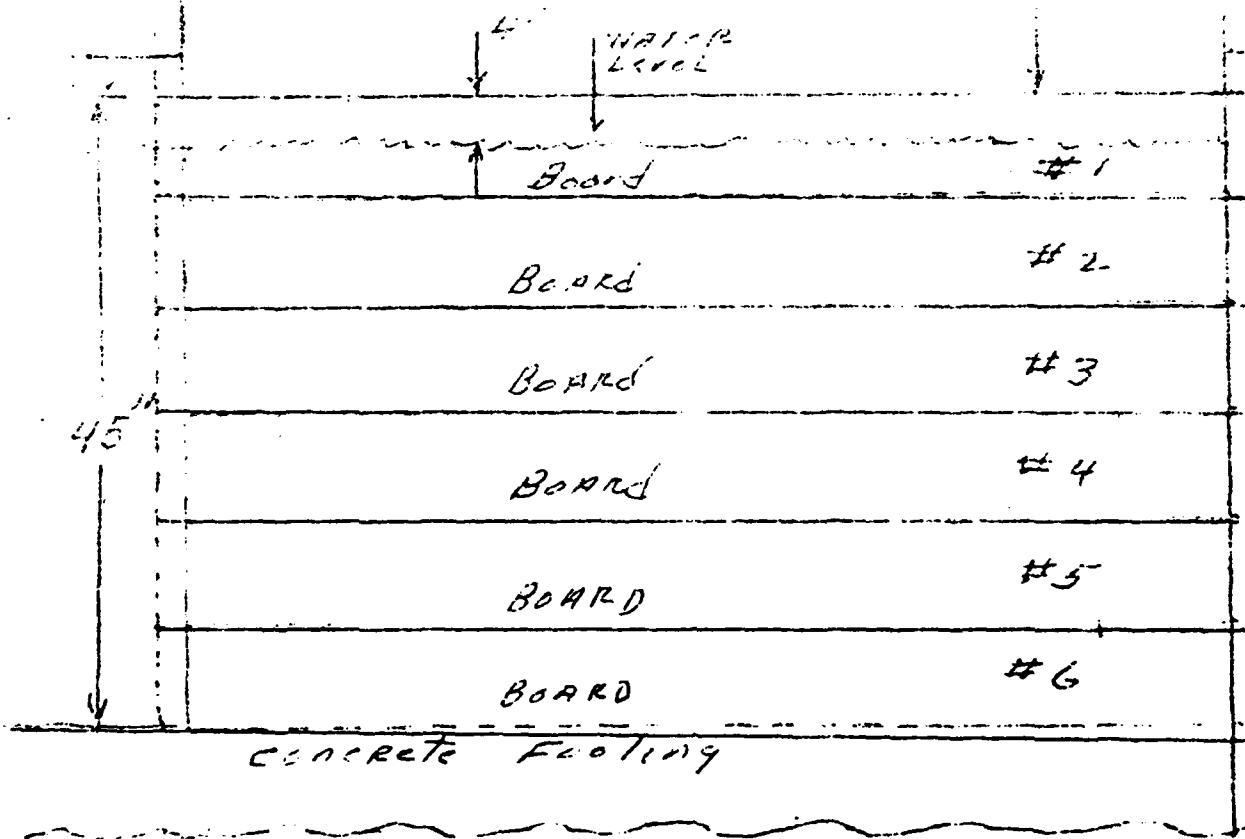 4"
WATER
Level
Board #1
BOARD #2
BOARD #3
45 in
BOARD #4
BOARD #5
BOARD #6
concrete Footing